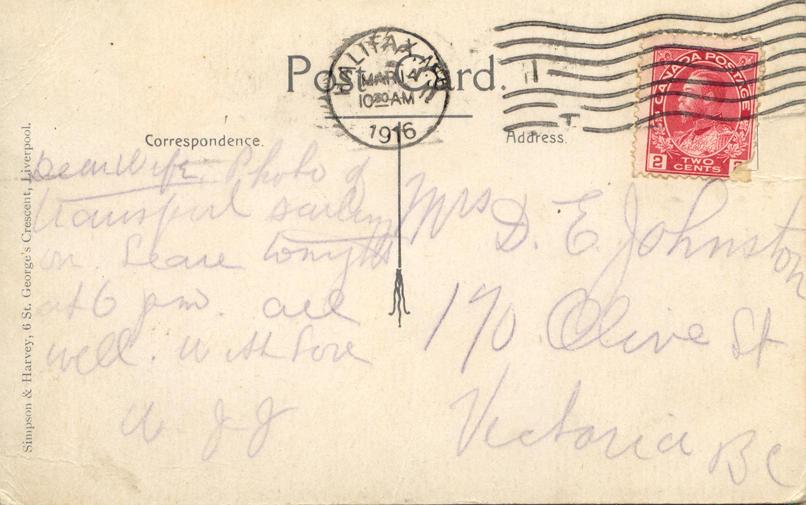 Post Card.
HALIFAX, N.S.
MAR 14
10 30 AM
1916
CANADA POSTAGE
2 TWO CENTS
Correspondence.
Address.
Dear Wife. Photo of
transport sailing
on. Leave tonight
at 6 pm. all
well. With love
Mrs D. E. Johnston
170 Olive St
Victoria BC
Simpson & Harvey, 6 St. George's Crescent, Liverpool.